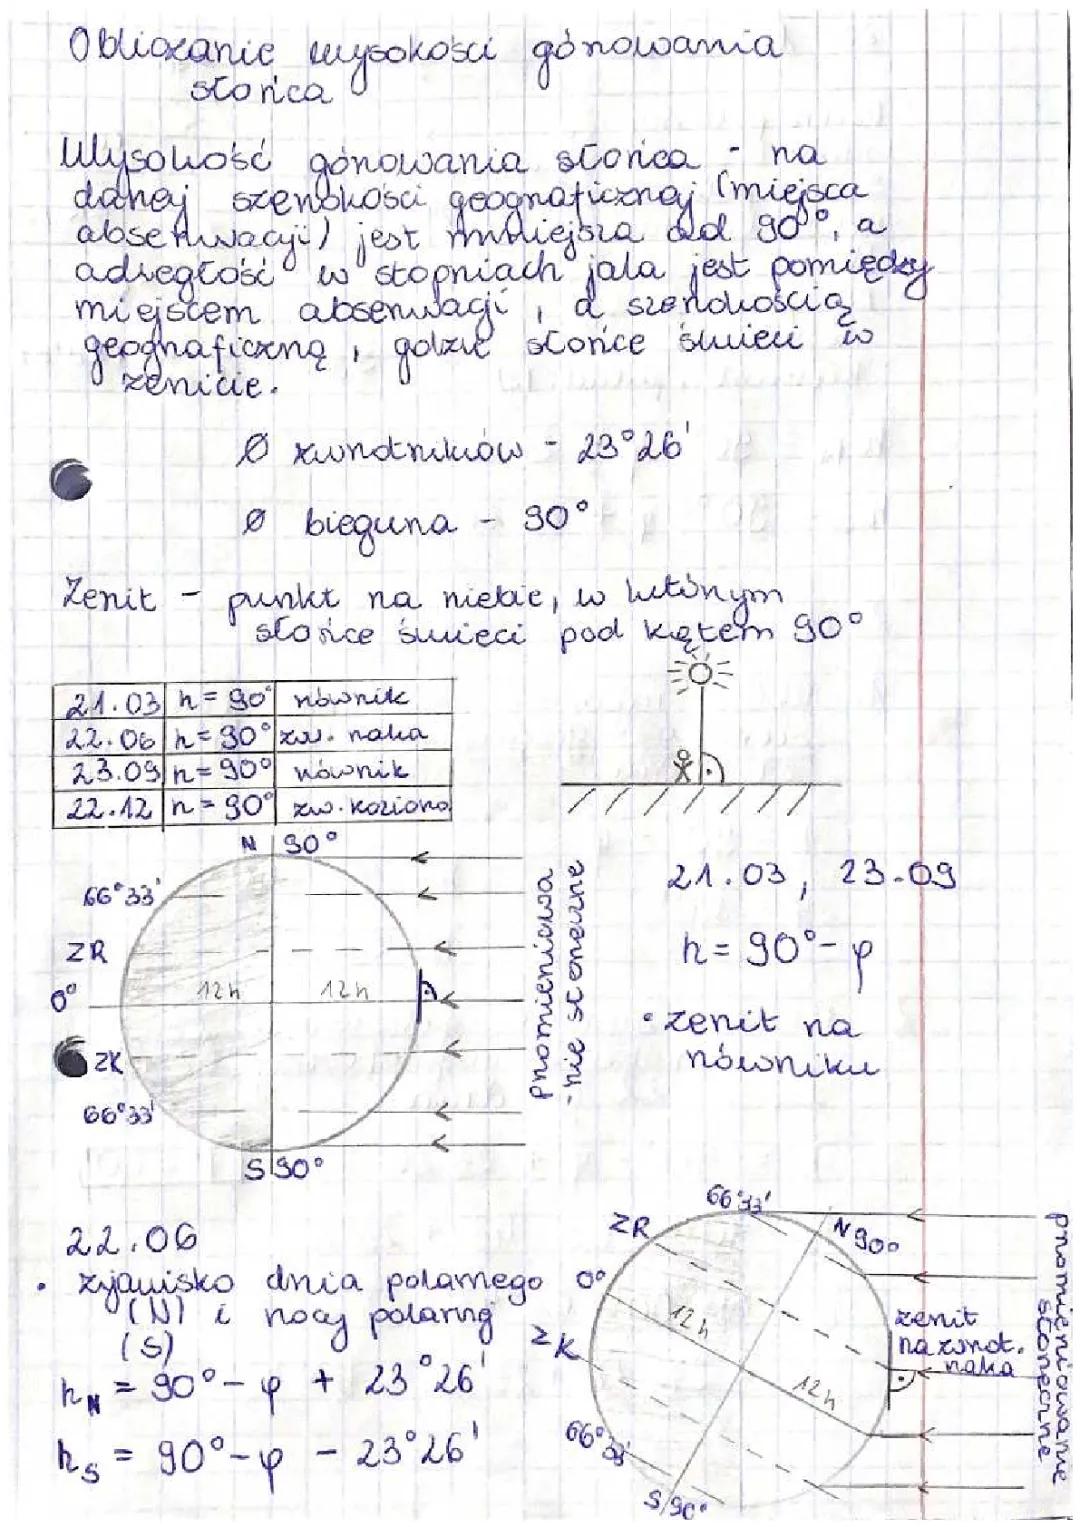 Obliczanie wysokości górowania
słońca
Wysokość górowania słońca - na
danej szerokości geograficznej (miejsca
obserwacji) jest mniejsza od 90°, a
odległość w stopniach jaka jest pomiędzy
miejscem obserwacji, a szerokością
geograficzną, gdzie słońce świeci w
zenicie.
Ø zwrotników - 23°26'
Ø bieguna - 90°
Zenit - punkt na niebie, w którym
słońce świeci pod kątem 90°
21.03 h = 90° równik
22.06 h = 90° zw. raka
23.09 h = 90° równik
22.12 h = 90° zw. kozioro
N 90°
66°33'
ZR
0°
12h 12h
ZK
66°33'
S 90°
promieniowa
-nie słoneczne
21.03, 23.09
h = 90° - φ
• zenit na
równiku
22.06
• zjawisko dnia polarnego
(N) i nocy polarnej
(S)
hN = 90° - φ + 23°26'
hS = 90° - φ - 23°26'
66°33'
ZR
N 90°
0°
12h
zenit
na zwrot.
raka
ZK
12h
66°33'
S 90°
promieniowanie
słoneczne